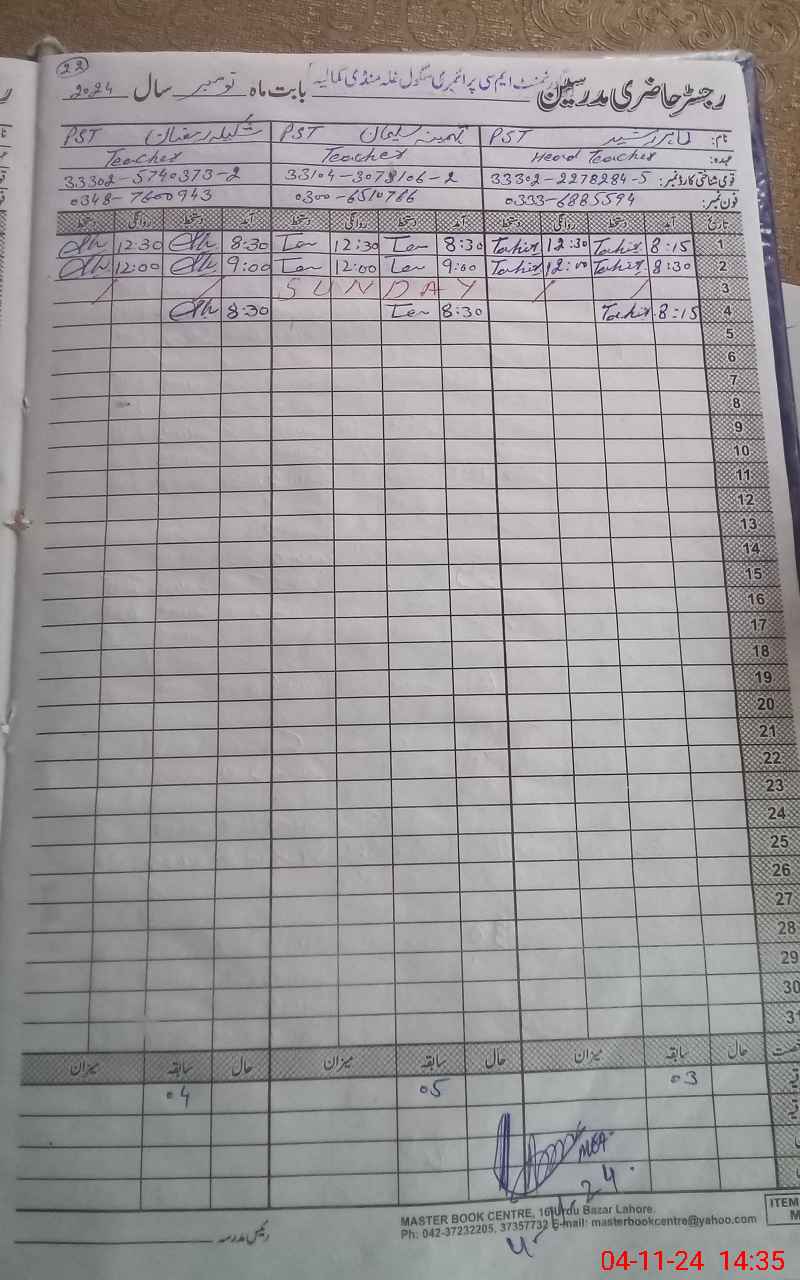 22
گورنمنٹ ایم سی پرائمری سکول غلہ منڈی کمالیہ
رجسٹر حاضری مدرسین بابت ماہ نومبر سال 2024
نام: طاہر رشید PST تہمینہ سلیمان PST شکیلہ رمضان PST
عہدہ: Head Teacher Teacher Teacher
قومی شناختی کارڈ نمبر: 33302-2278284-5 33104-3078106-2 33302-5740373-2
فون نمبر: 0333-6885594 0300-6510766 0348-7600943
تاریخ آمد دستخط روانگی دستخط آمد دستخط روانگی دستخط آمد دستخط روانگی دستخط
1 8:15 Tahir 12:30 Tahir 8:30 12:30 8:30 12:30
2 8:30 Tahir 12:00 Tahir 9:00 12:00 9:00 12:00
3 SUNDAY
4 8:15 Tahir 8:30 8:30
5
6
7
8
9
10
11
12
13
14
15
16
17
18
19
20
21
22
23
24
25
26
27
28
29
30
31
حال سابقہ میزان حال سابقہ میزان حال سابقہ میزان
03 05 04
MEA
MASTER BOOK CENTRE, 16 Urdu Bazar Lahore.
Ph: 042-37232205, 37357732 E-mail: masterbookcentre@yahoo.com
ITEM
رئیس مدرسہ
04-11-24 14:35